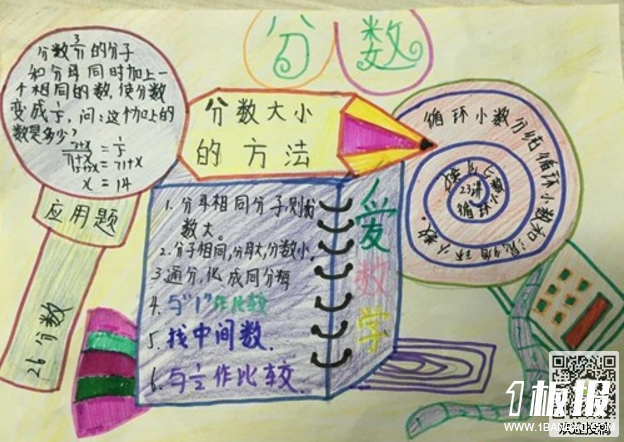 分数
分数3/71的分子
和分母同时加上一
个相同的数,使分数
变成1/5,问:这个加上的
数是多少?
3+x/71+x = 1/5
= 71+x
x = 14
应用题
26分数
分数大小
的方法
1. 分母相同分子则
数大。
2. 分子相同,分母大,分数小。
3 通分,化成同分母
4. 与"1"作比较
5. 找中间数.
6. 与1/2作比较.
爱数学
循环小数分纯循环小数和混循环小数.
循环小数
1板报
WWW.1BANBAO.COM
欢迎投稿